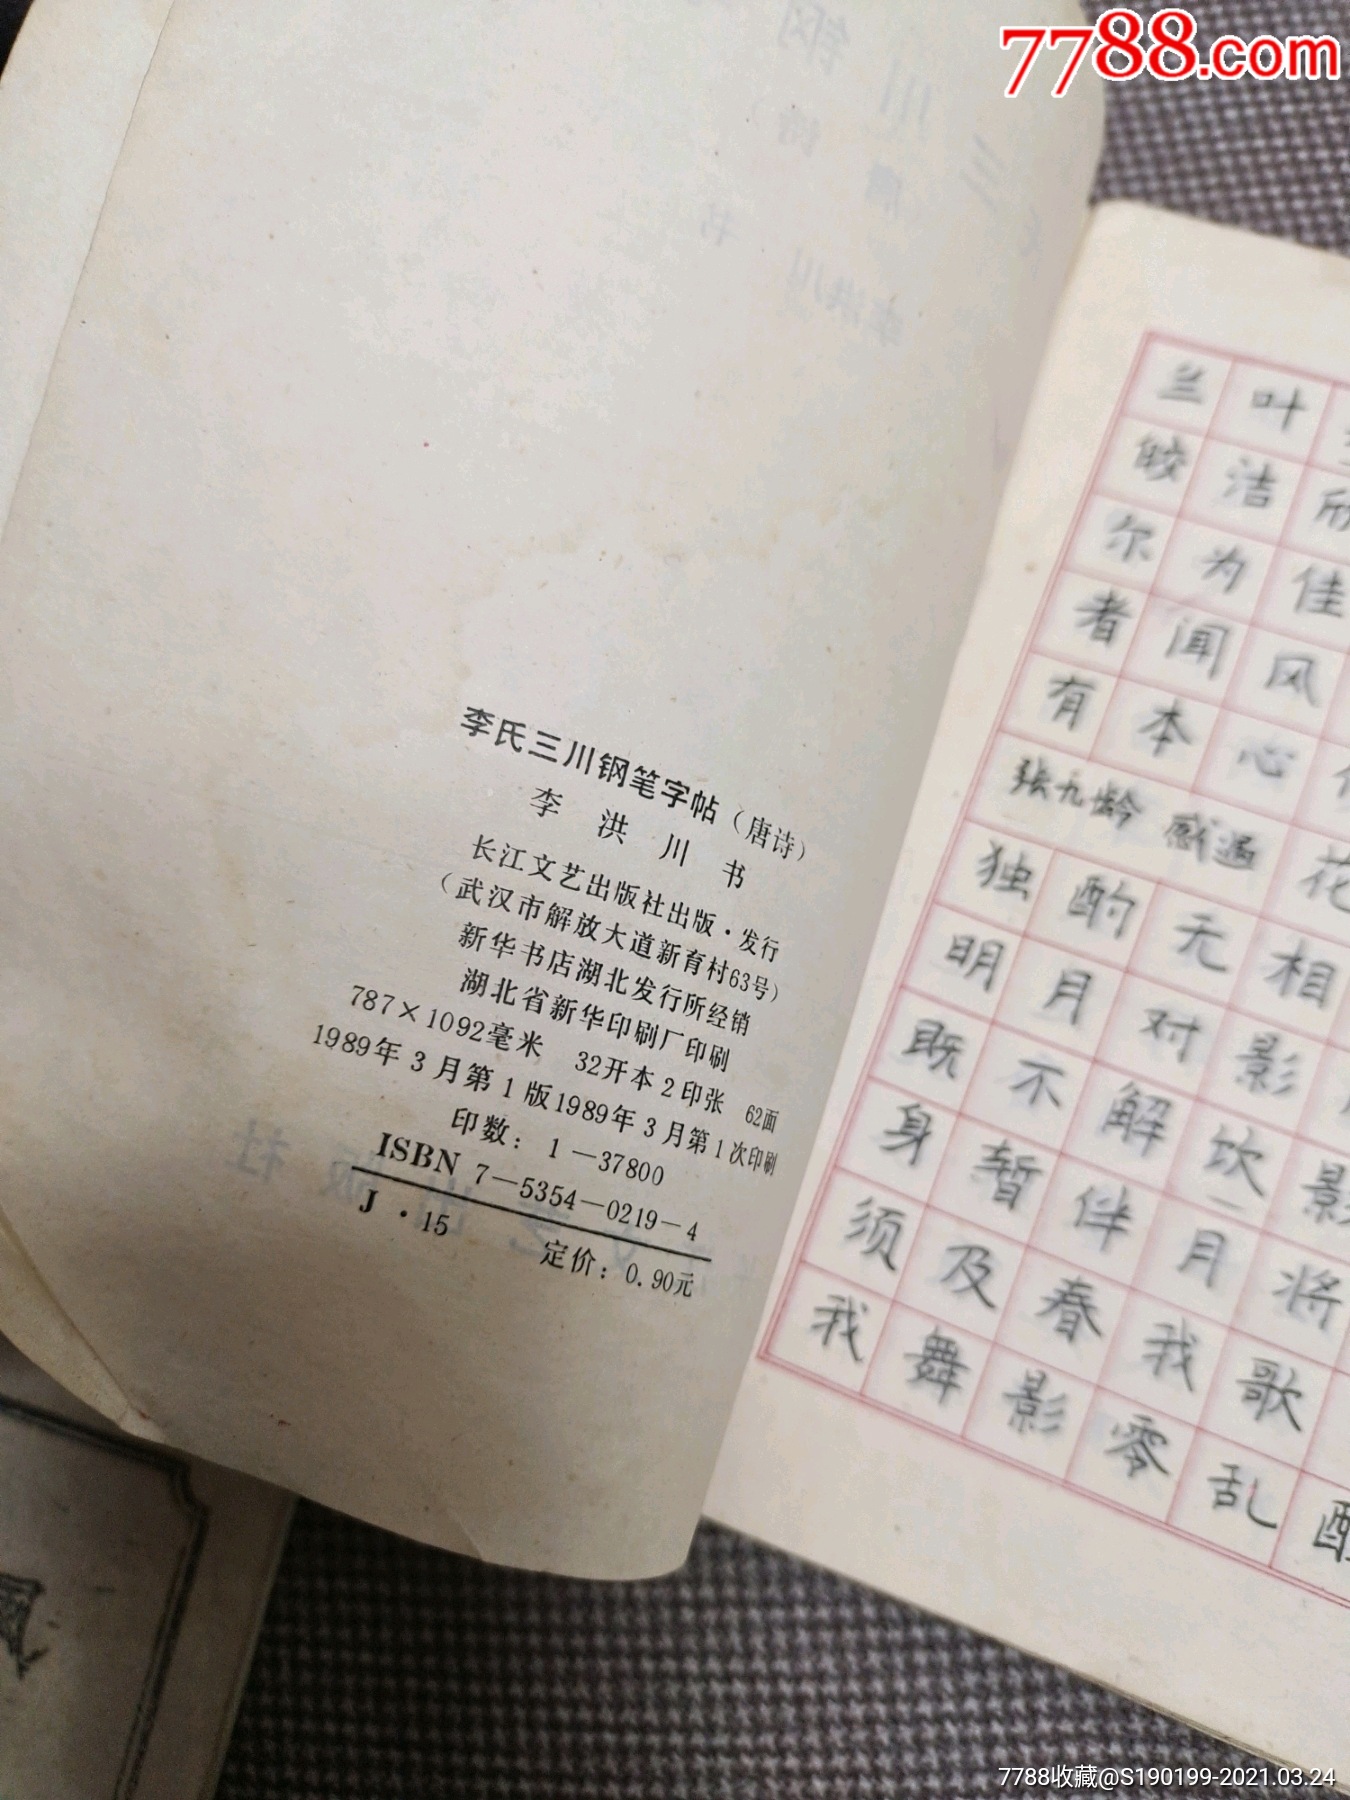 7788.com
李氏三川钢笔字帖（唐诗）
李 洪 川 书
长江文艺出版社出版·发行
（武汉市解放大道新育村63号）
新华书店湖北发行所经销
湖北省新华印刷厂印刷
787×1092毫米 32开本 2印张 62面
1989年3月第1版1989年3月第1次印刷
印数：1—37800
ISBN 7—5354—0219—4
J·15
定价：0.90元
兰叶
皎洁欣
尔为佳
者闻风
有本心
张九龄 感遇 花
独酌无相
明月对影
既不解饮影
身暂伴月将
须及春我歌
我舞影零乱醒
7788收藏@S190199-2021.03.24